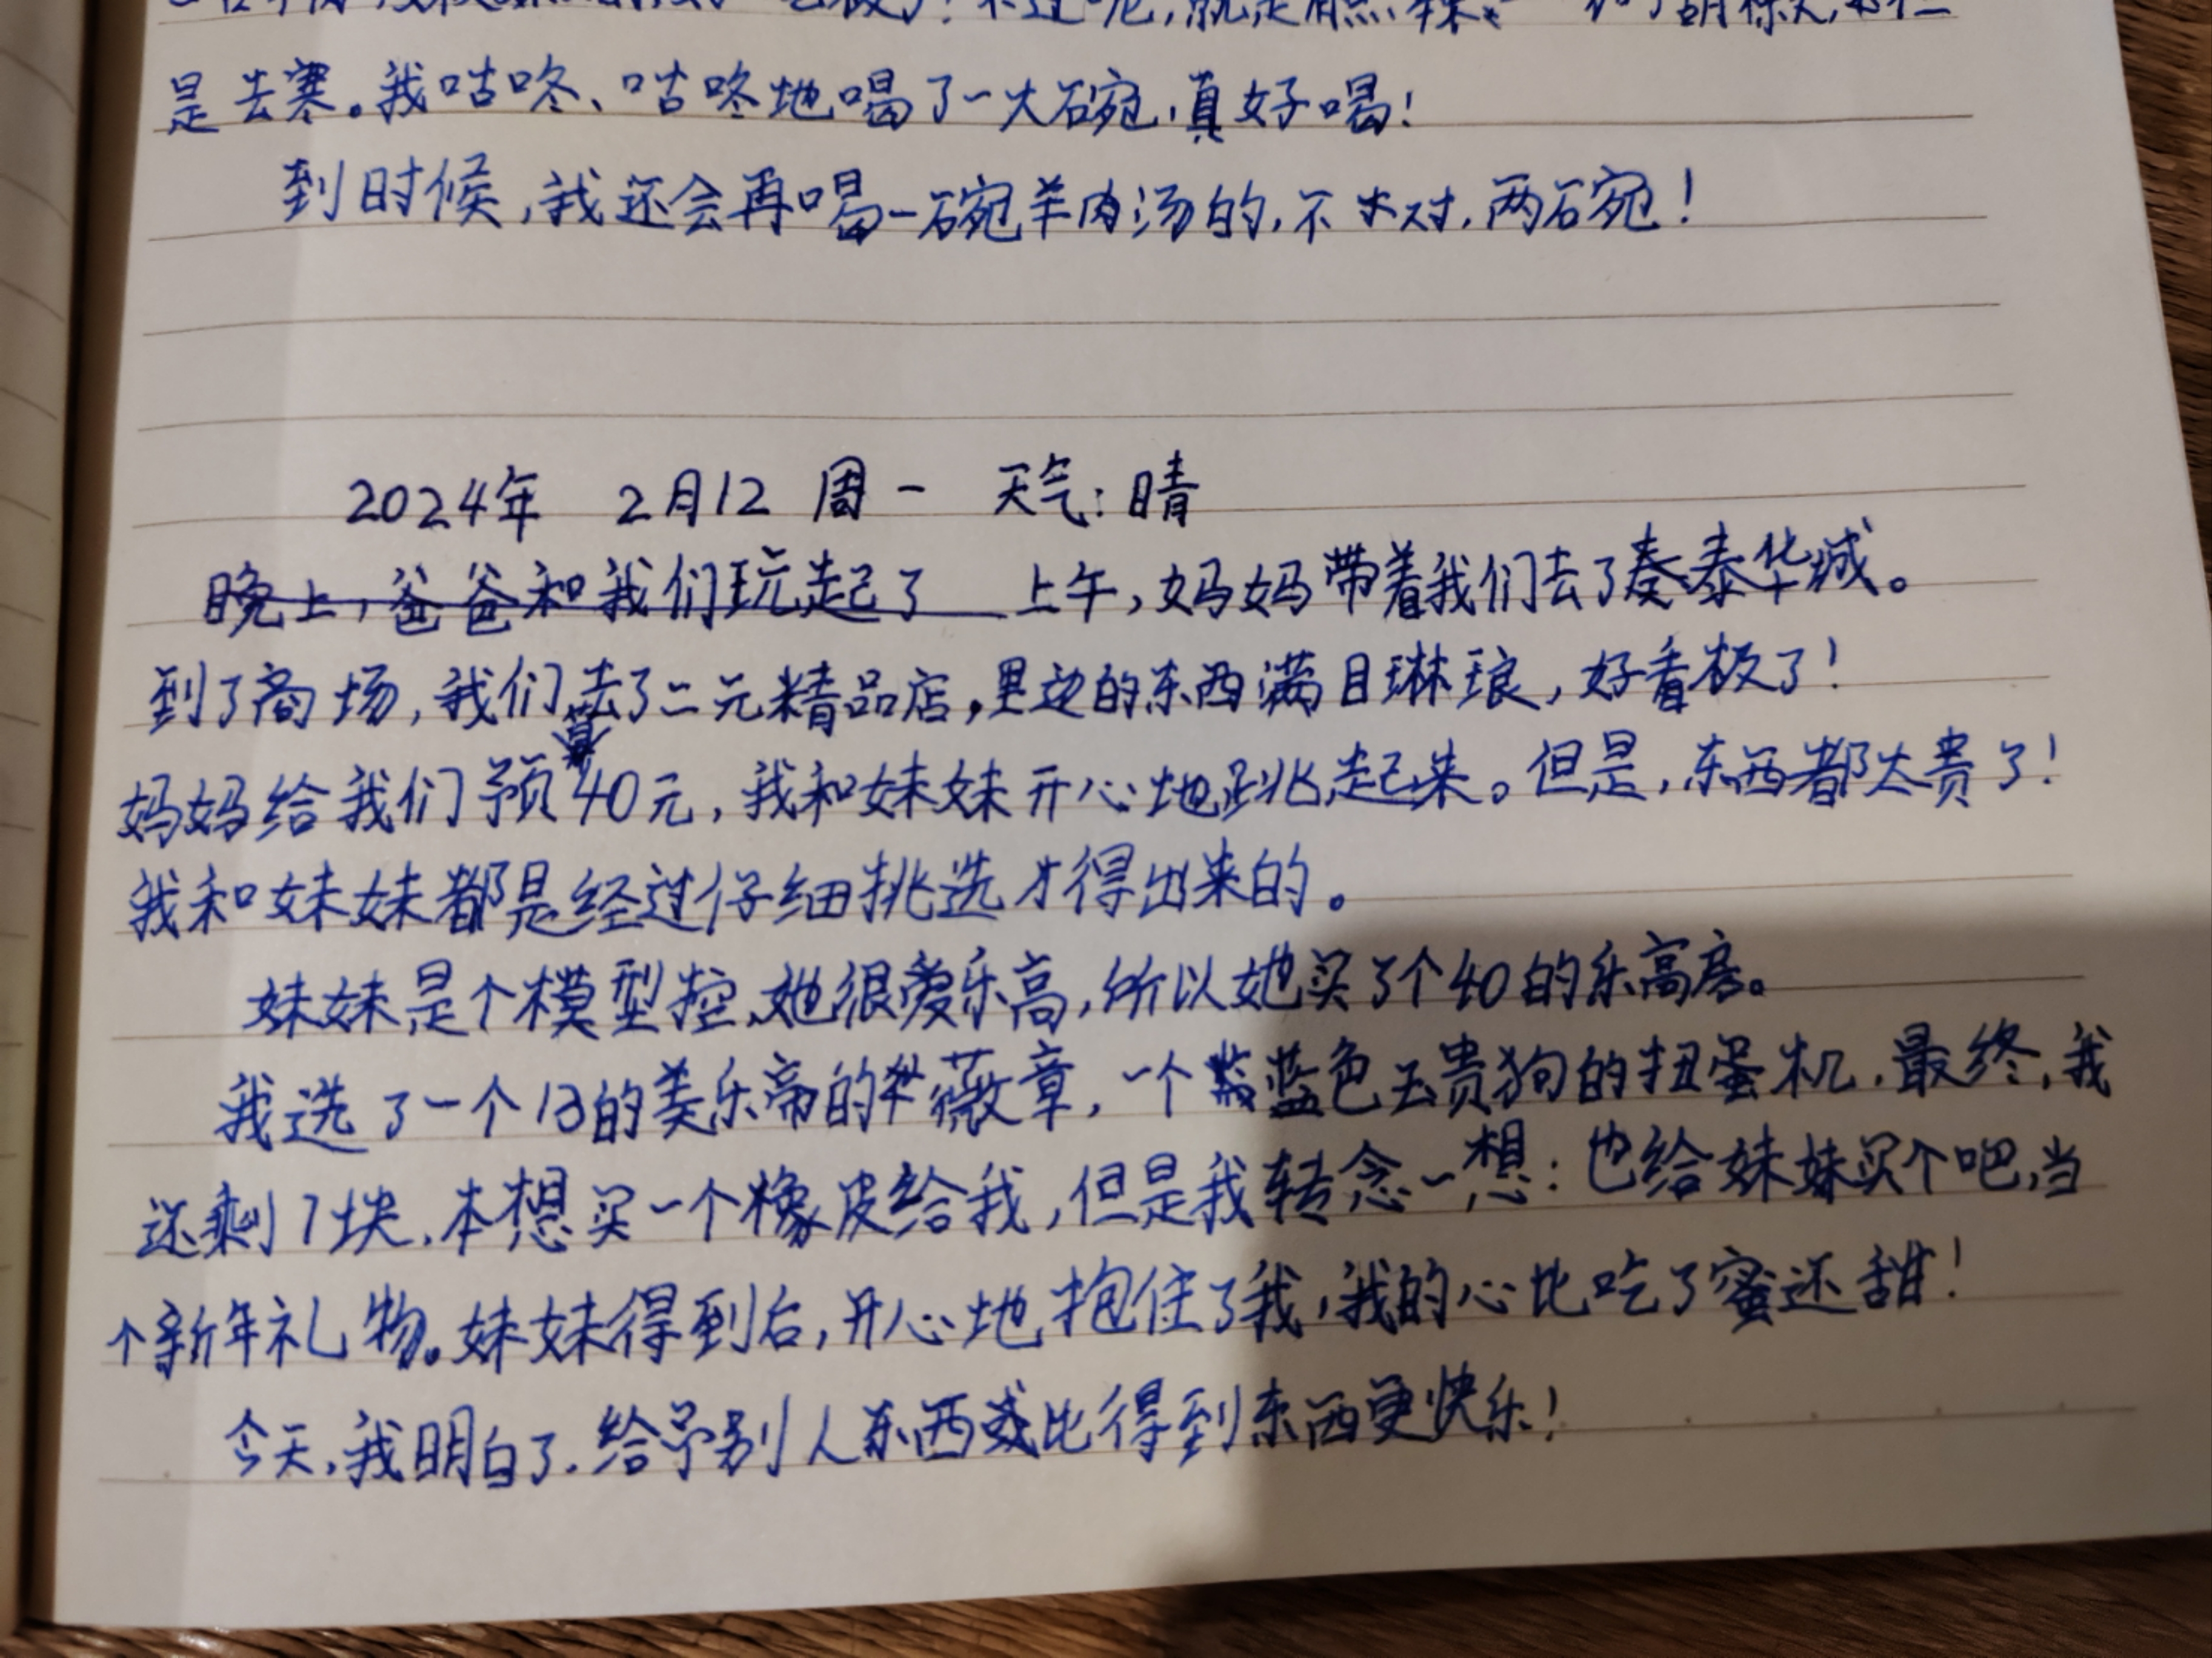 是去寒。我咕咚、咕咚地喝了一大碗，真好喝！
到时候，我还会再喝一碗羊肉汤的，不不对，两碗！
2024年 2月12 周一 天气：晴
晚上，爸爸和我们玩起了 上午，妈妈带着我们去了秦泰华城。
到了商场，我们去了二元精品店，里边的东西满目琳琅，好看极了！
妈妈给我们预算40元，我和妹妹开心地跳起来。但是，东西都太贵了！
我和妹妹都是经过仔细挑选才得出来的。
妹妹是个模型控，她很爱乐高，所以她买了个40的乐高房。
我选了一个13的美乐帝的薇章，一个蓝色玉贵狗的扭蛋机，最终，我
还剩7块，本想买一个橡皮给我，但是我转念一想：也给妹妹买个吧，当
个新年礼物。妹妹得到后，开心地抱住了我，我的心比吃了蜜还甜！
今天，我明白了，给予别人东西或比得到东西更快乐！